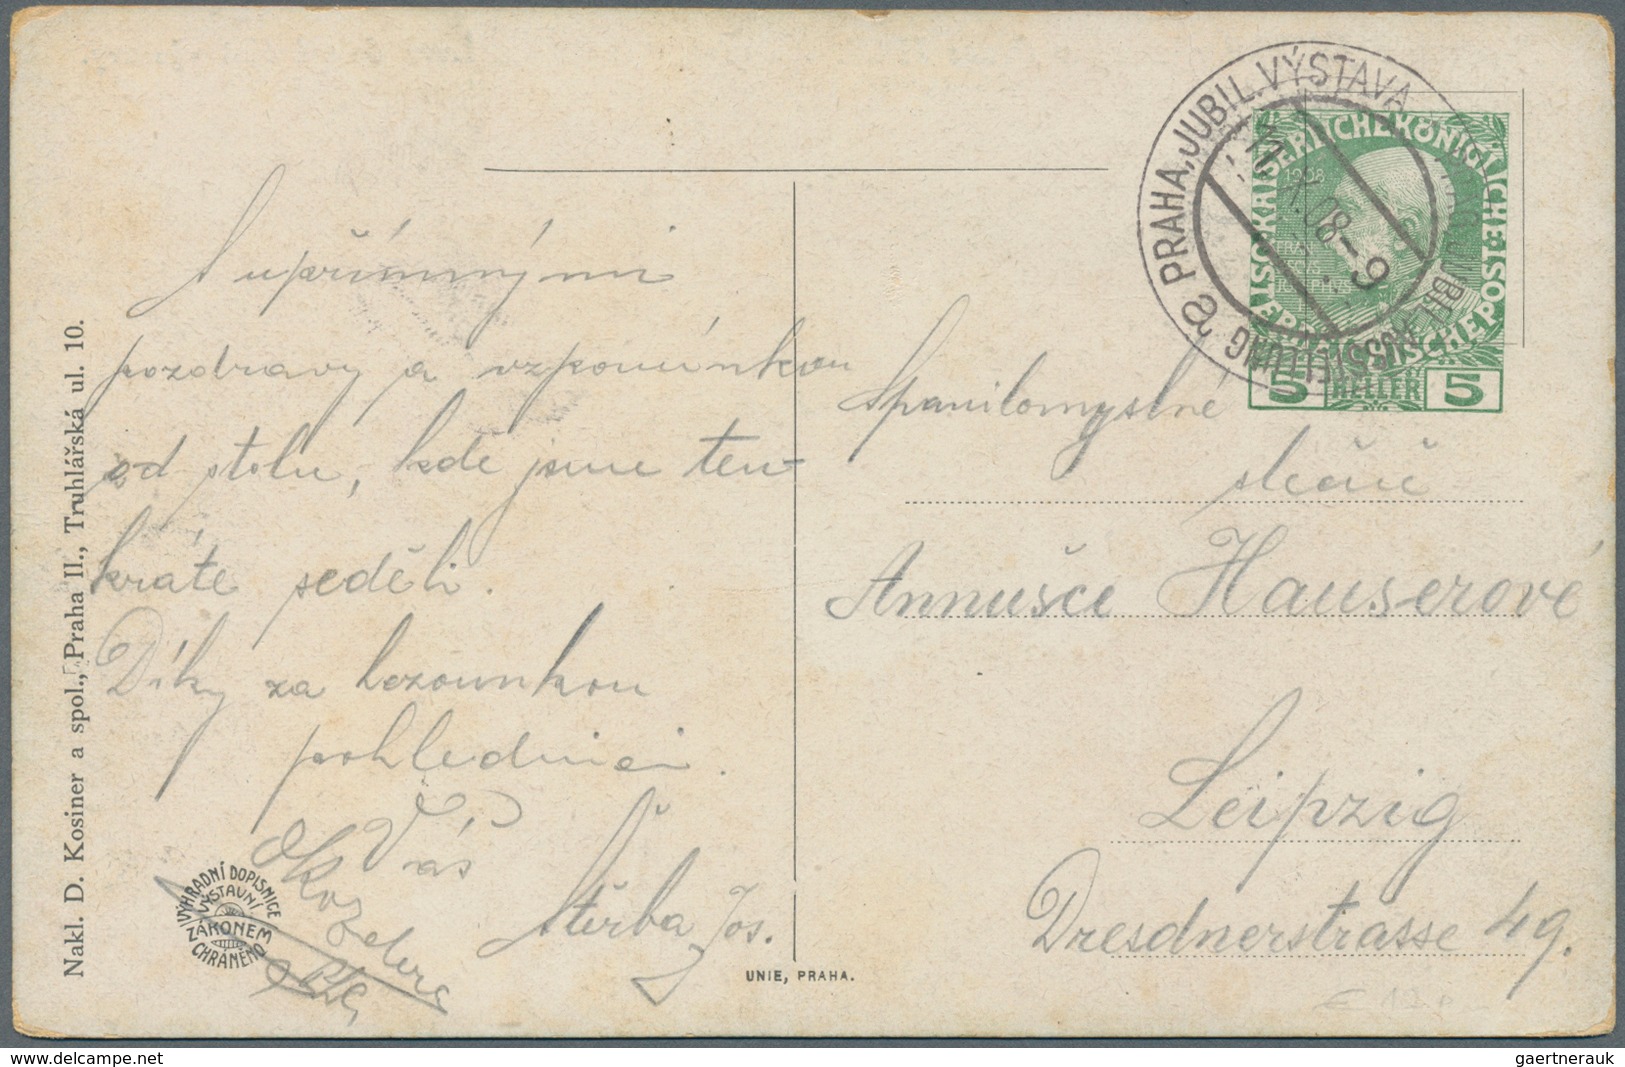 S upřímnými
pozdravy a vzpomínkou
od stolu, kde jsme ten-
kráte seděli.
Díky za hezounkou
pohlednici.
Váš
Štěrba Jos.
Nakl. D. Kosiner a spol., Praha II., Truhlářská ul. 10.
VÝHRADNÍ DOPISNICE
VÝSTAVNÍ
ZÁKONEM
CHRÁNĚNO
UNIE, PRAHA.
PRAHA, JUBIL. VÝSTAVA
JUBIL. AUSSTELLUNG
08-9
KAISERLICHE KÖNIGLICHE
ÖSTERREICHISCHE POST
1908
5 HELLER 5
Spanilomyslné
slečně
Annušce Hauserové
Leipzig
Dresdnerstrasse 49.
gaertnerauk
www.delcampe.net